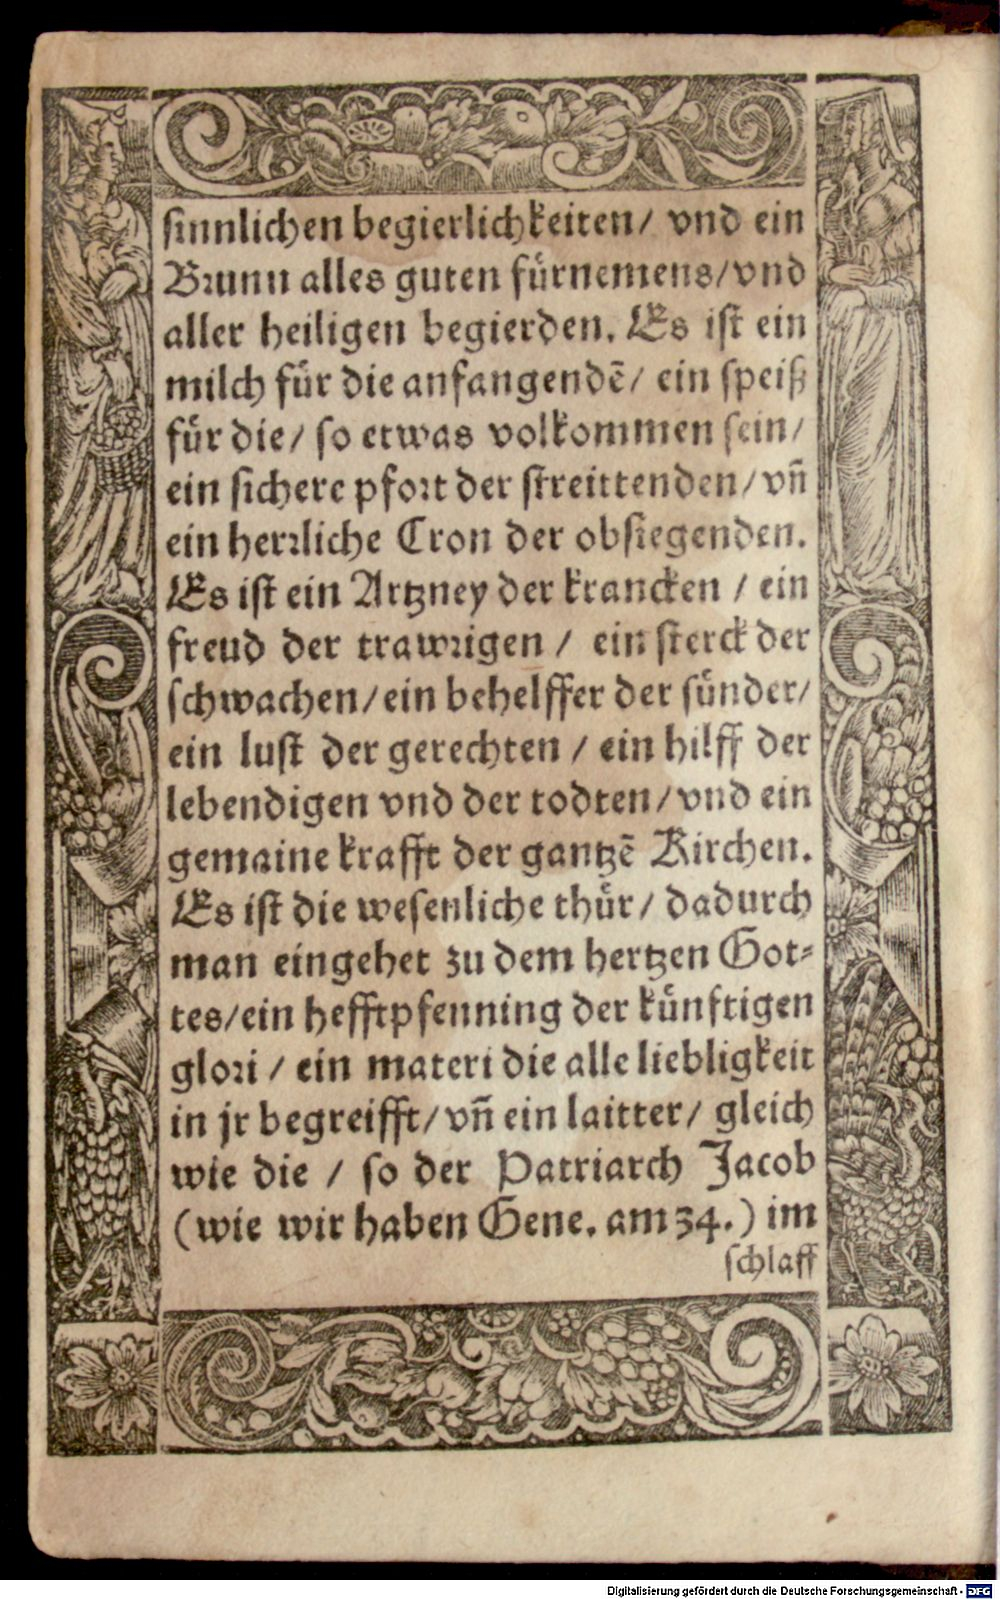 sinnlichen begierlichkeiten/ vnd ein
Brunn alles guten fürnemens/vnd
aller heiligen begierden. Es ist ein
milch für die anfangendē/ ein speiß
für die/ so etwas volkommen sein/
ein sichere pfort der streittenden/vñ
ein herrliche Cron der obsiegenden.
Es ist ein Artzney der krancken / ein
freud der trawrigen / ein sterck der
schwachen/ein behelffer der sünder/
ein lust der gerechten / ein hilff der
lebendigen vnd der todten/vnd ein
gemaine krafft der gantzē Kirchen.
Es ist die wesenliche thür/ dadurch
man eingehet zu dem hertzen Got-
tes/ein hefftpfenning der künftigen
glori / ein materi die alle liebligkeit
in jr begreifft/vñ ein laitter/ gleich
wie die / so der Patriarch Jacob
(wie wir haben Gene. am 34.) im
schlaff
Digitalisierung gefördert durch die Deutsche Forschungsgemeinschaft - DFG